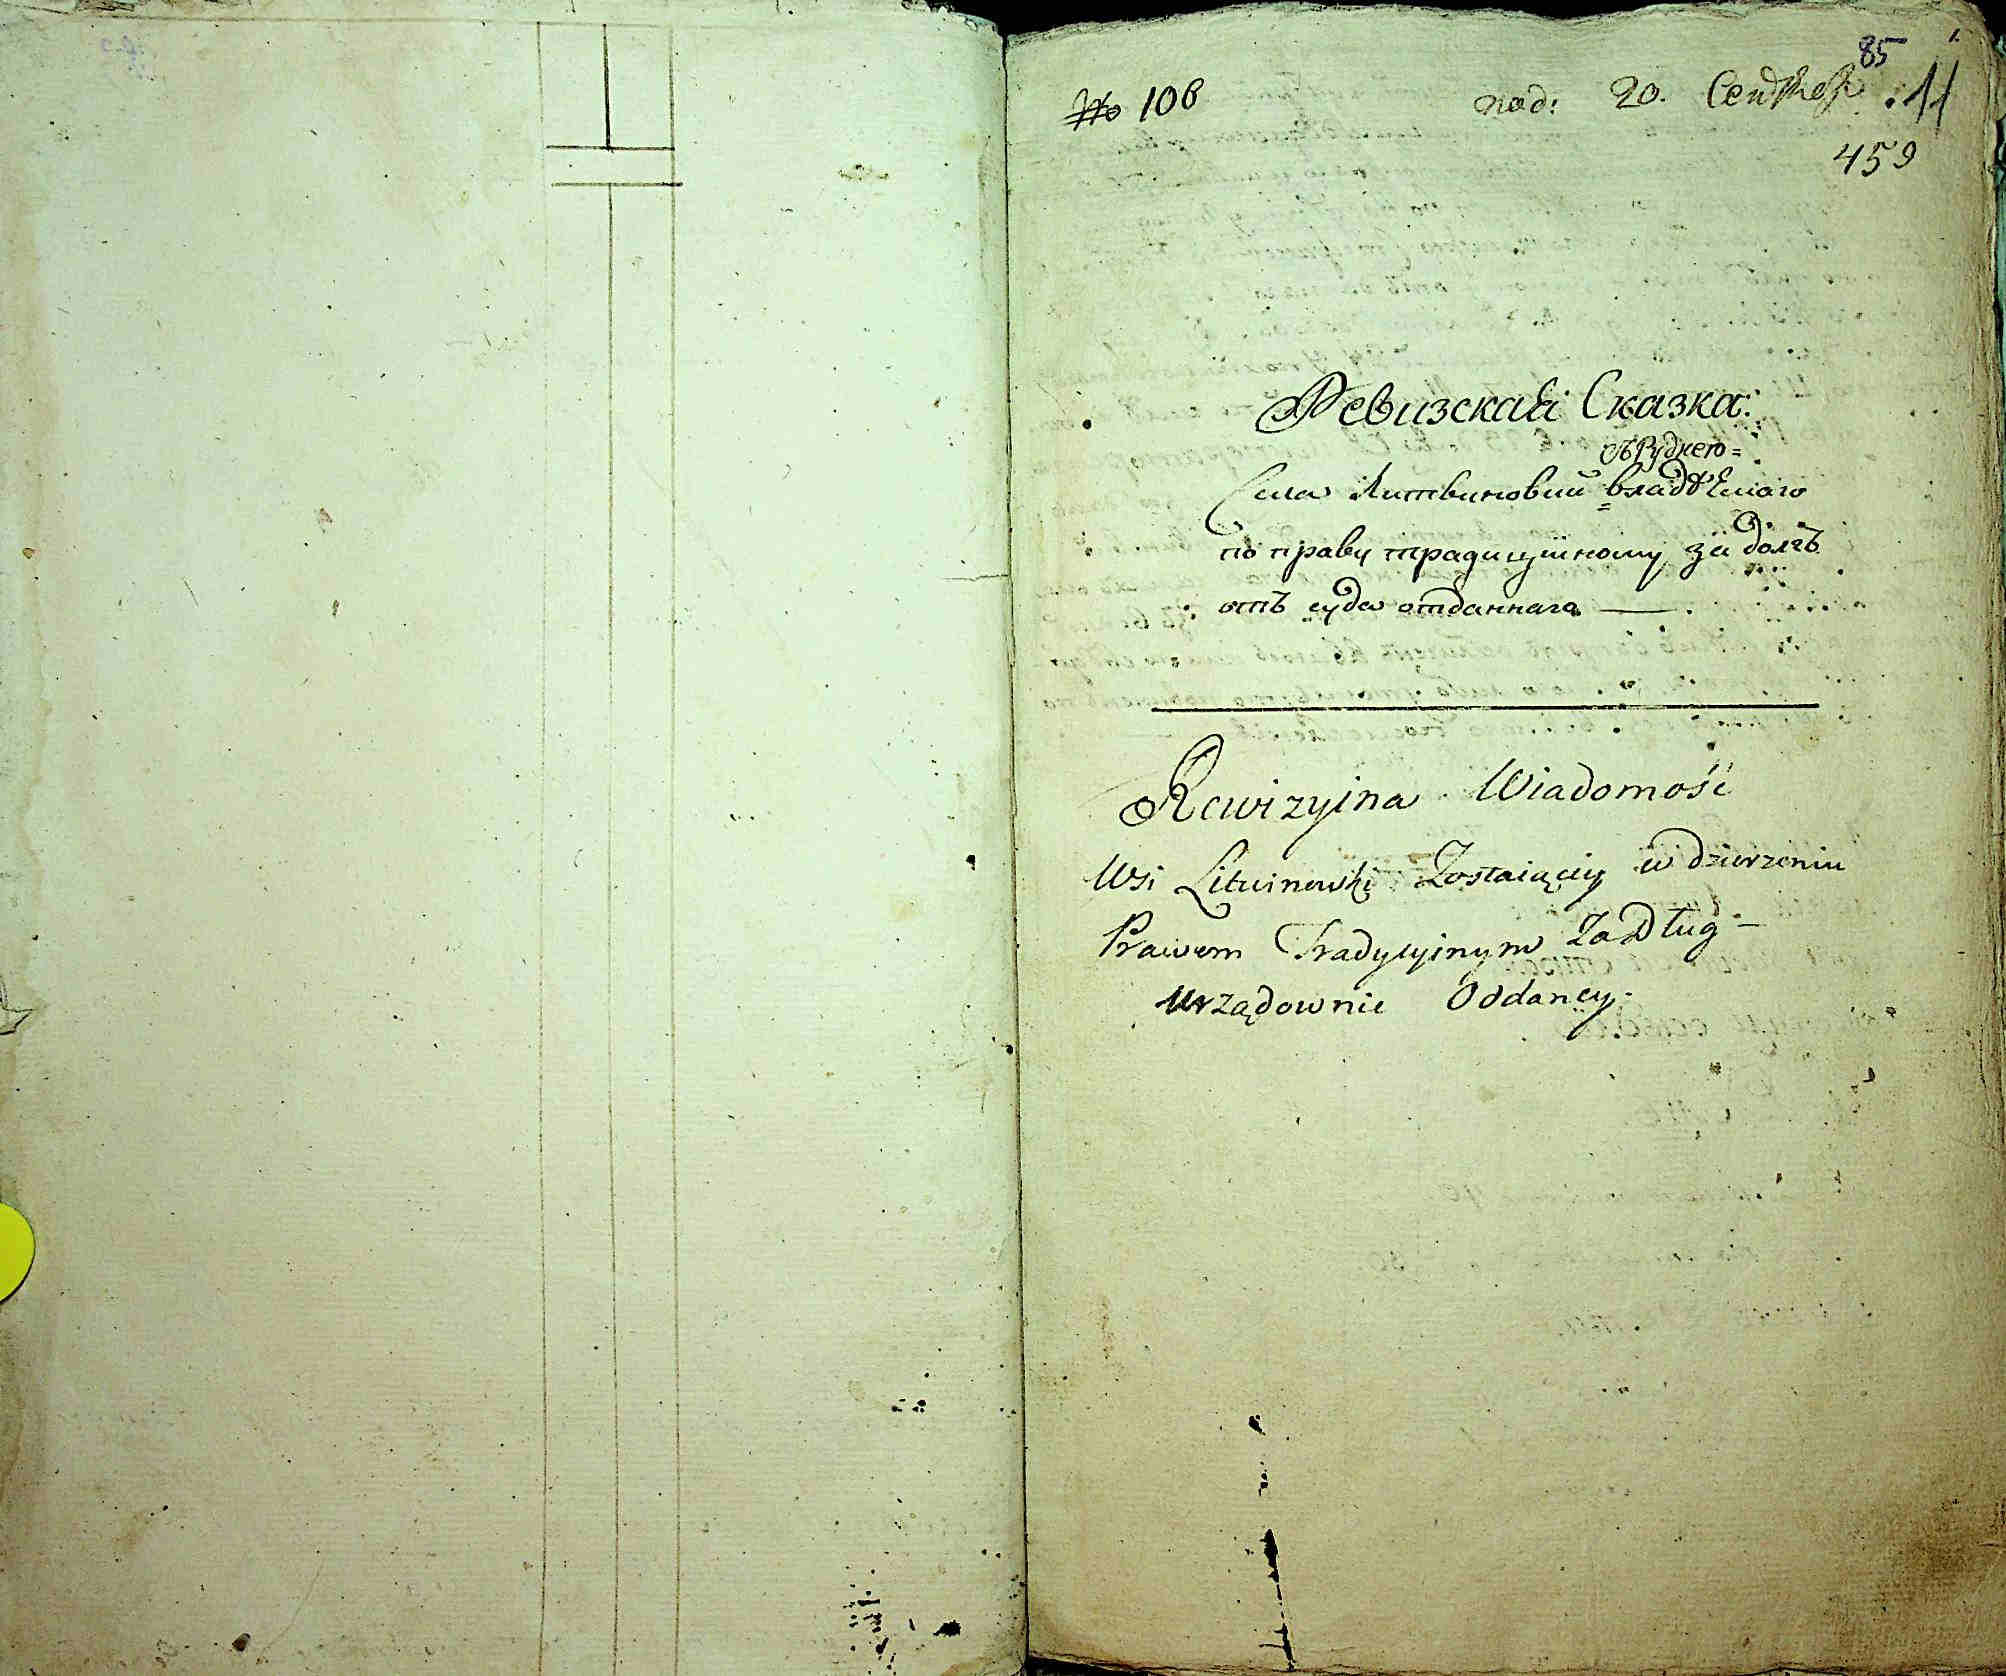 85 1.
№ 106 под: 20. Сентяб .11
459
Ревизская Сказка:
Села Литвиновки владѣемого
по праву традицийному за долгъ
отъ суда отданнаго
Rewizyina Wiadomość
Wsi Litwinowki Zostaiącey w dzierzeniu
Prawem Tradycyinym Za Dług
Urządownie Oddaney.